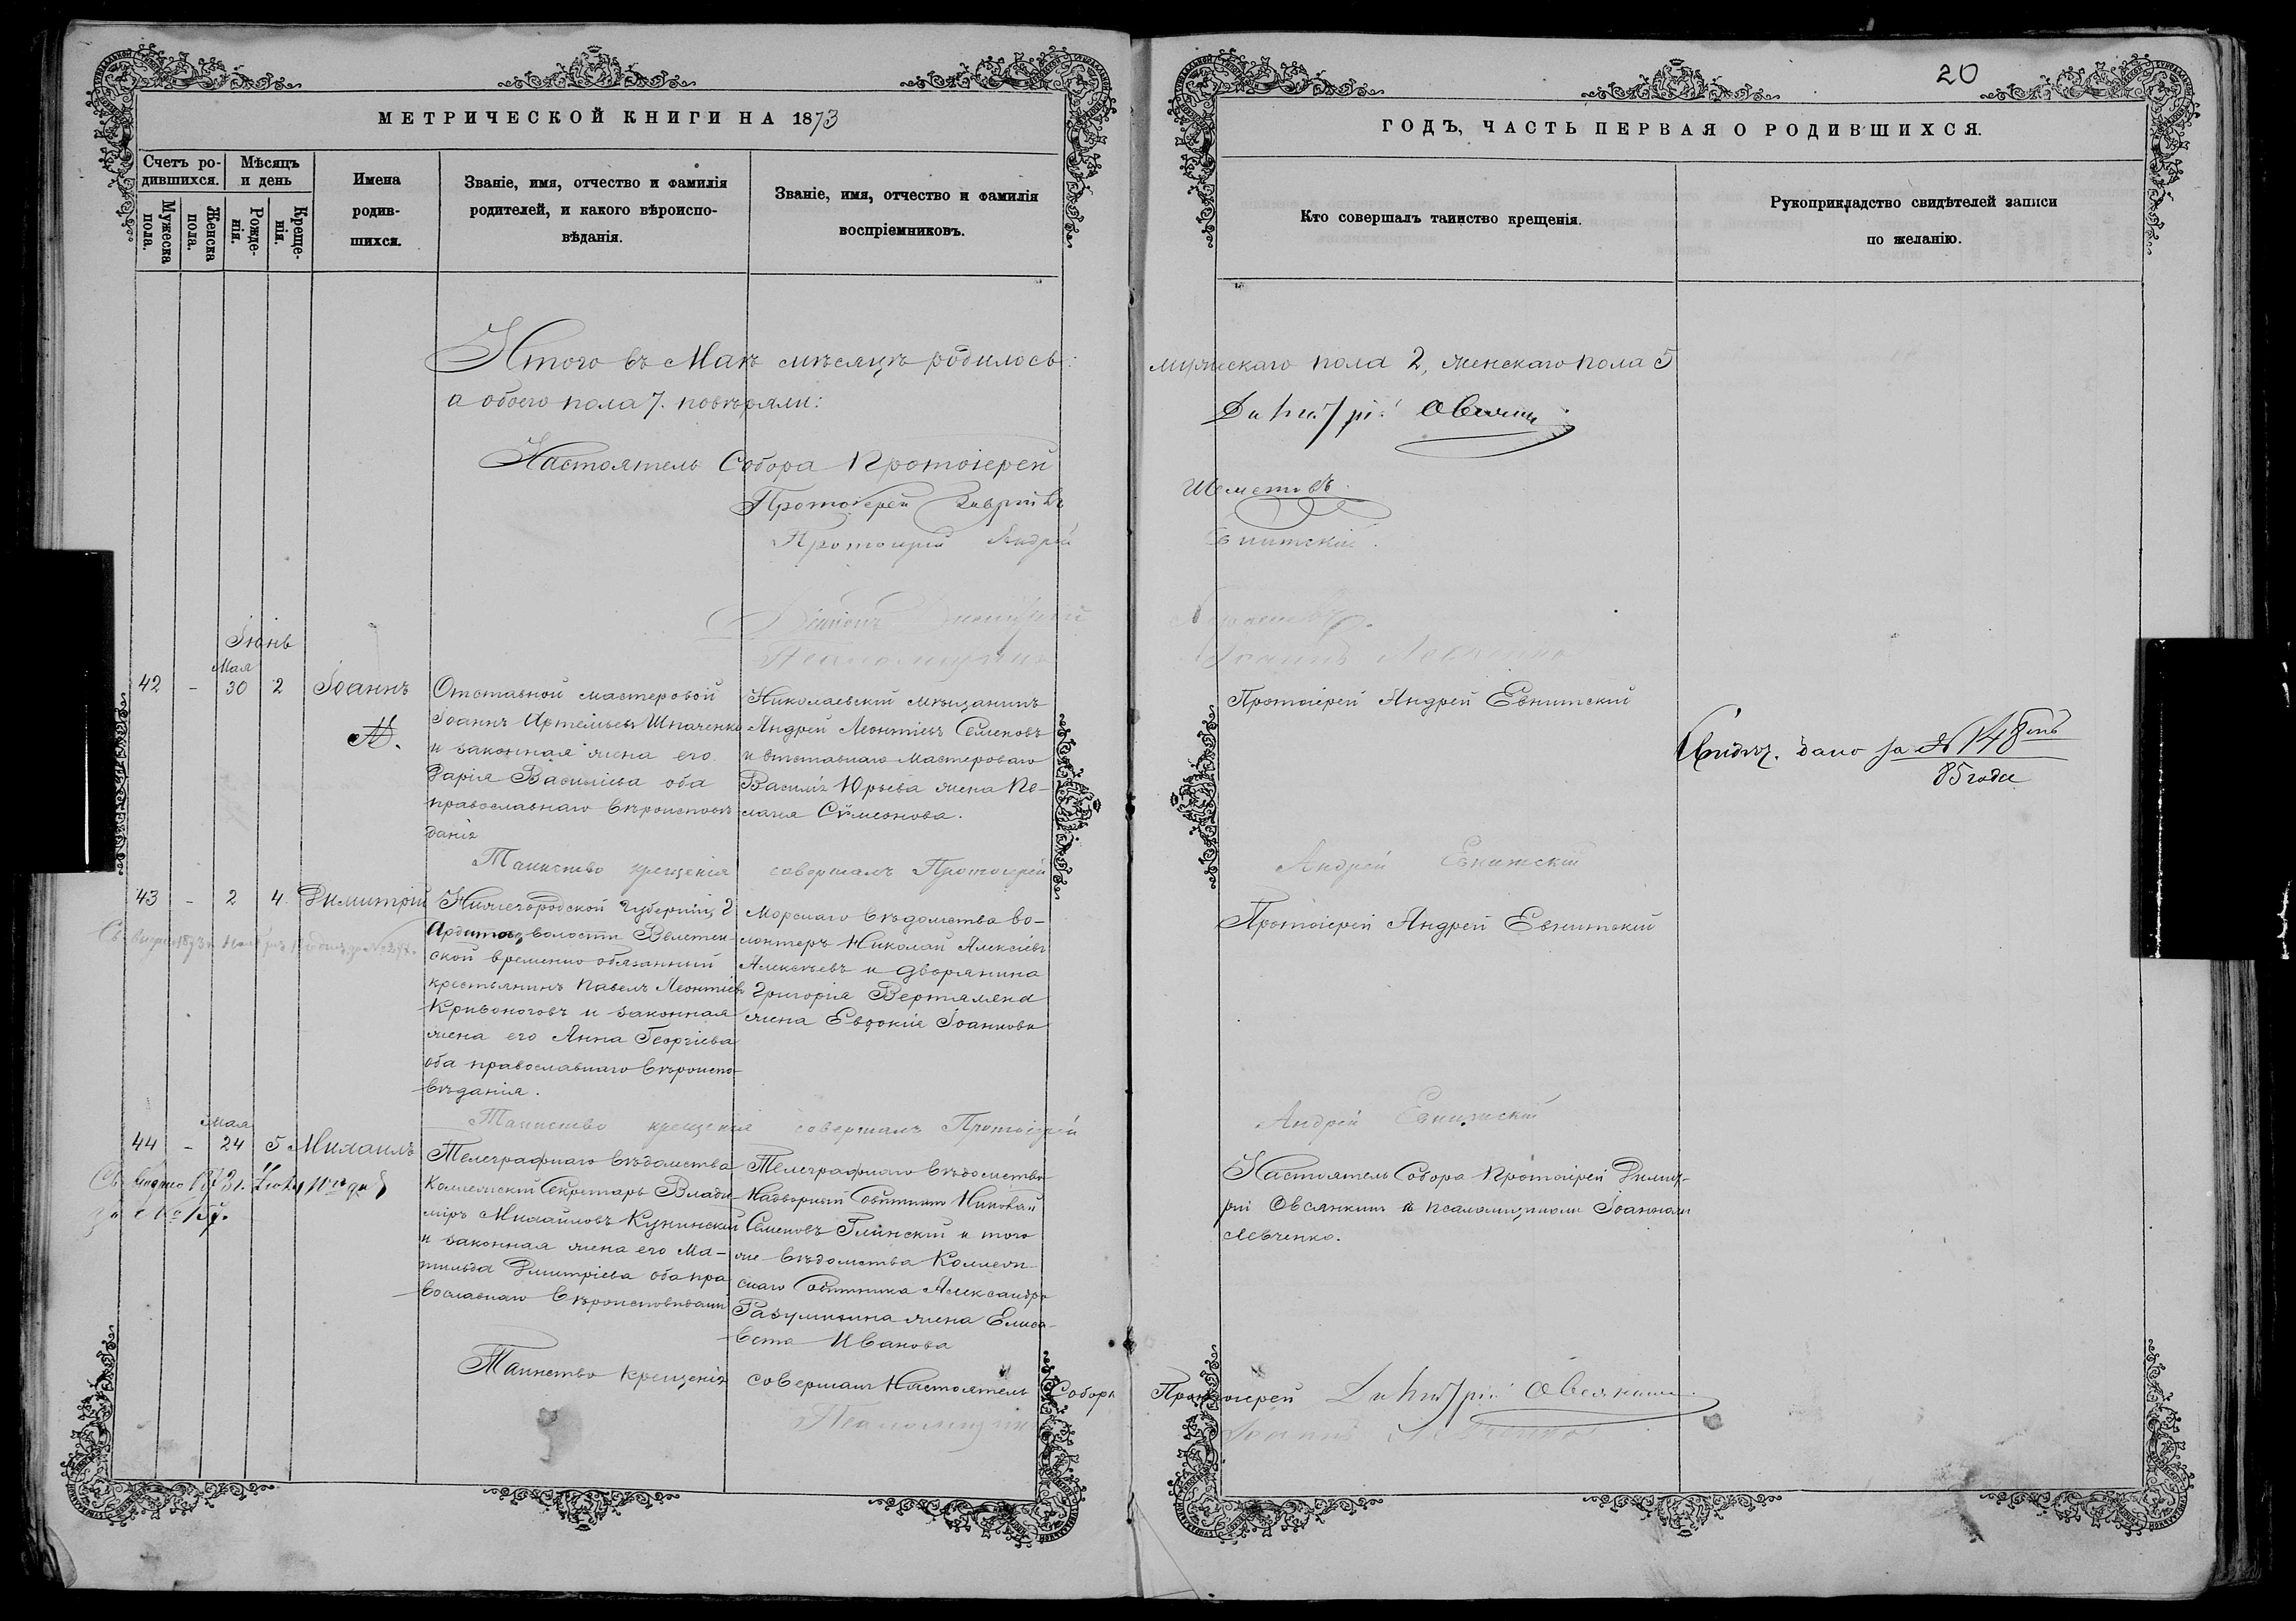 20
МЕТРИЧЕСКОЙ КНИГИ НА 1873
ГОДЪ, ЧАСТЬ ПЕРВАЯ О РОДИВШИХСЯ.
Счетъ ро-
дившихся.
Мѣсяцъ
и день
Мужеска
пола.
Женска
пола.
Рожде-
нія.
Креще-
нія.
Имена
родив-
шихся.
Званіе, имя, отчество и фамилія
родителей, и какого вѣроиспо-
вѣданія.
Званіе, имя, отчество и фамилія
воспріемниковъ.
Кто совершалъ таинство крещенія.
Рукоприкладство свидѣтелей записи
по желанію.
Итого въ Маѣ мѣсяцѣ родилось: мужескаго пола 2, женскаго пола 5
а обоего пола 7. повѣряли:
Настоятель Собора Протоіерей
Димитрій Овсянкин
Протоіерей
Протоіерей Андрей Евнитскій.
Псаломщикъ Іоаннъ Левченко
Іюнь
Мая
42 - 30 2 Іоаннъ
Отставной мастеровой
Іоаннъ Артемьевъ Шпаченко
и законная жена его
Дарія Василіева оба
православнаго вѣроисповѣ
данія
Николаевскій мѣщанинъ
Андрей Леонтіевъ Семеновъ
и отставнаго мастероваго
Василія Юрьева жена Пе-
лагія Сѵмеонова.
Протоіерей Андрей Евнитскій
дано за № 148
85 года
Таинство крещенія совершалъ Протоіерей Андрей Евнитскій
43 - 2 4 Димитрій
Нижегородской Губерніи,
волости
ской временно обязанный
крестьянинъ Павелъ Леонтіевъ
Кривоноговъ и законная
жена его Анна Георгіева
оба православнаго вѣроиспо-
вѣданія.
Морскаго вѣдомства во-
лонтеръ Николай Алексіевъ
Алексѣевъ и дворянина
Григорія Вертяменя
жена Евдокія Іоаннова
Протоіерей Андрей Евнитскій
Таинство крещенія совершалъ Протоіерей Андрей Евнитскій
Мая
44 - 24 5 Михаилъ
Телеграфнаго вѣдомства
Коллежскій Секретарь Влади-
міръ Михайловъ Кунинскій
и законная жена его Ма-
тильда Дмитріева оба пра
вославнаго вѣроисповѣданія
Телеграфнаго вѣдомства
Надворный Совѣтникъ Николай
Семеновъ Глинскій и того
же вѣдомства Коллеж-
скаго Совѣтника Александра
Разумихина жена Елиса-
вета Иванова
Настоятель Собора Протоіерей Димит-
рій Овсянкинъ и псаломщикомъ Іоанномъ
Левченко.
Таинство крещенія совершалъ Настоятель Собора Протоіерей Димитрій Овсянкинъ
Псаломщикъ Іоаннъ Левченко